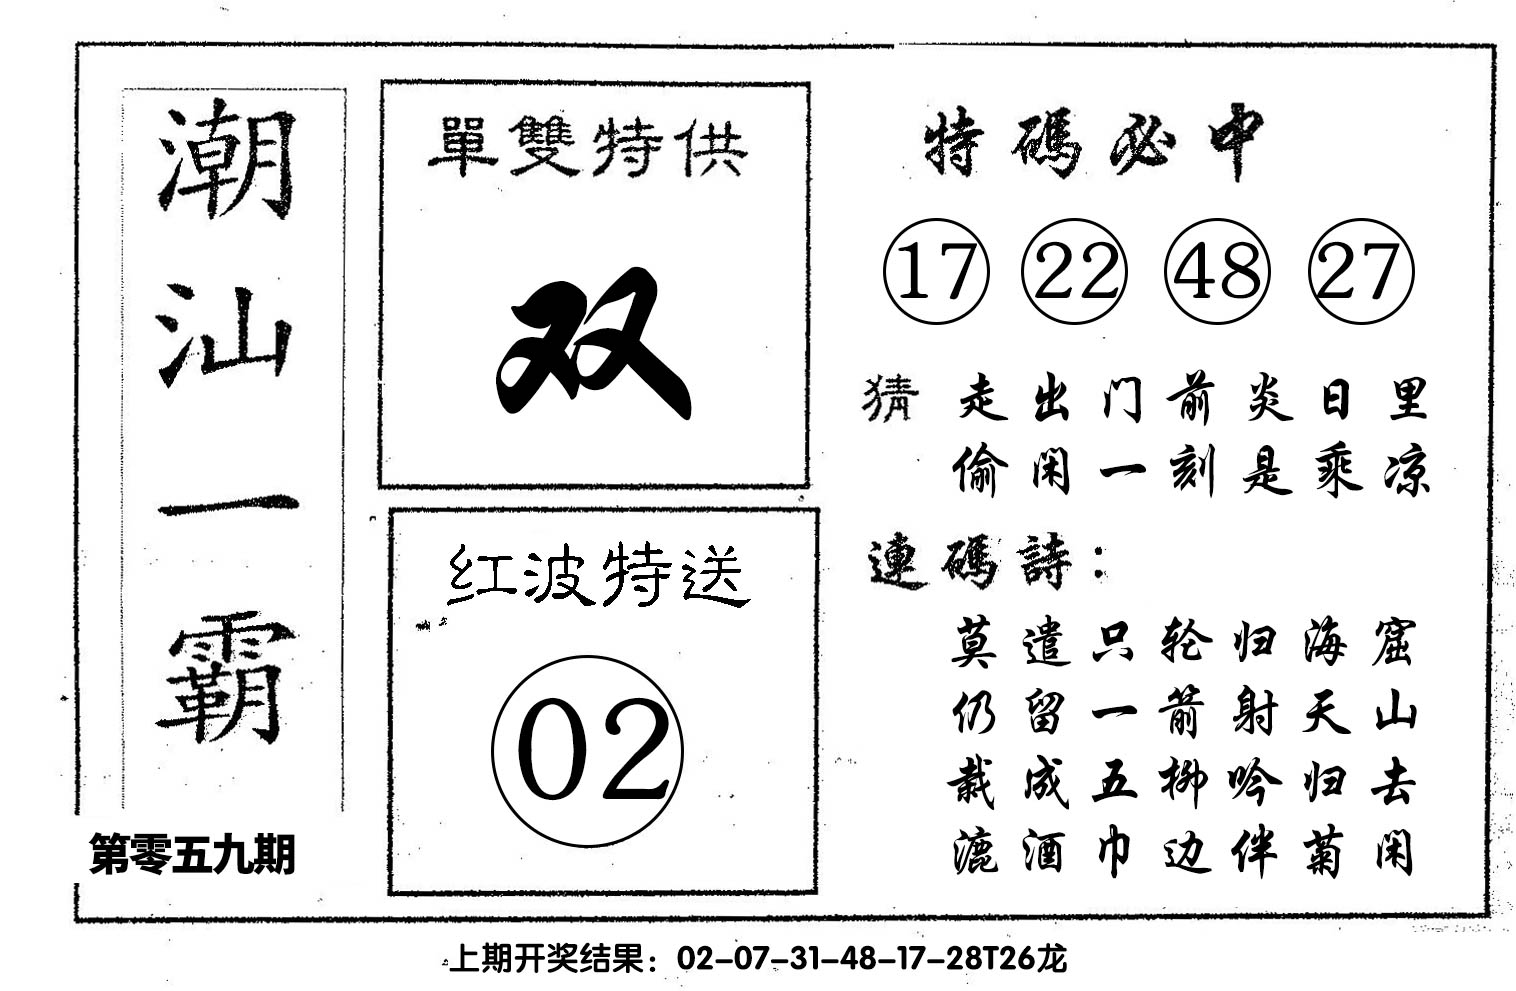 潮汕一霸
第零五九期
單雙特供
双
红波特送
02
特碼必中
17 22 48 27
猜 走出门前炎日里
偷闲一刻是乘凉
連碼詩：
莫遣只轮归海窟
仍留一箭射天山
栽成五柳吟归去
漉酒巾边伴菊闲
上期开奖结果：02-07-31-48-17-28T26龙